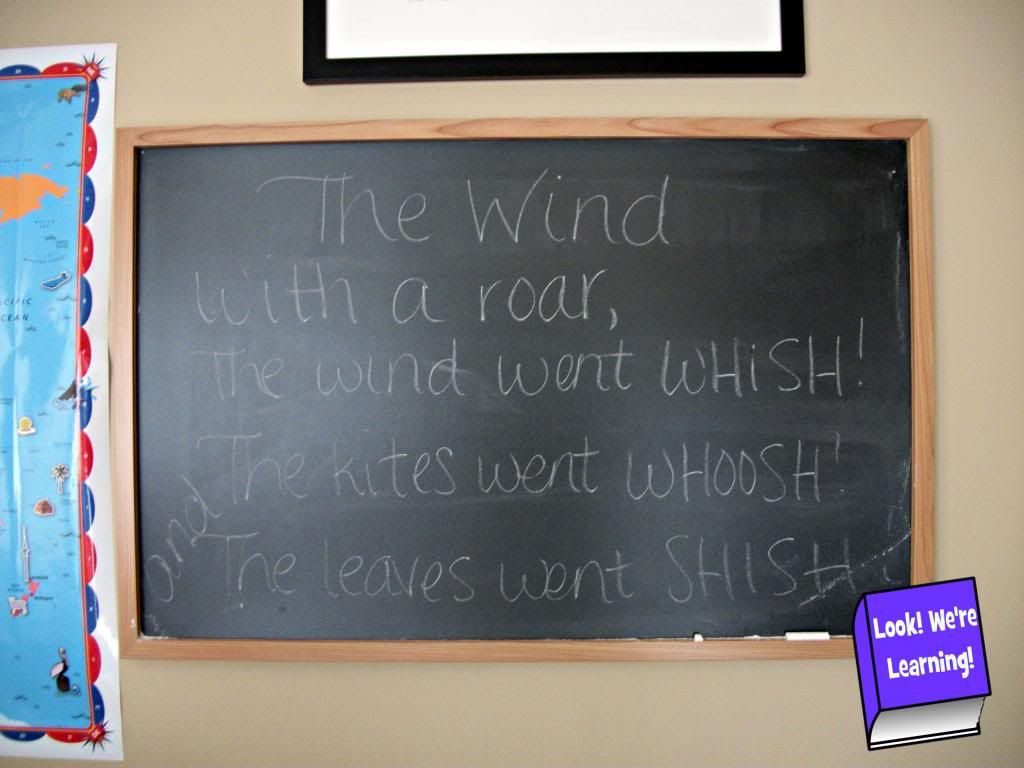 The Wind
With a roar,
The wind went WHiSH!
The kites went WHOOSH!
and The leaves went SHISH!
PACIFIC
OCEAN
Look! We're
Learning!